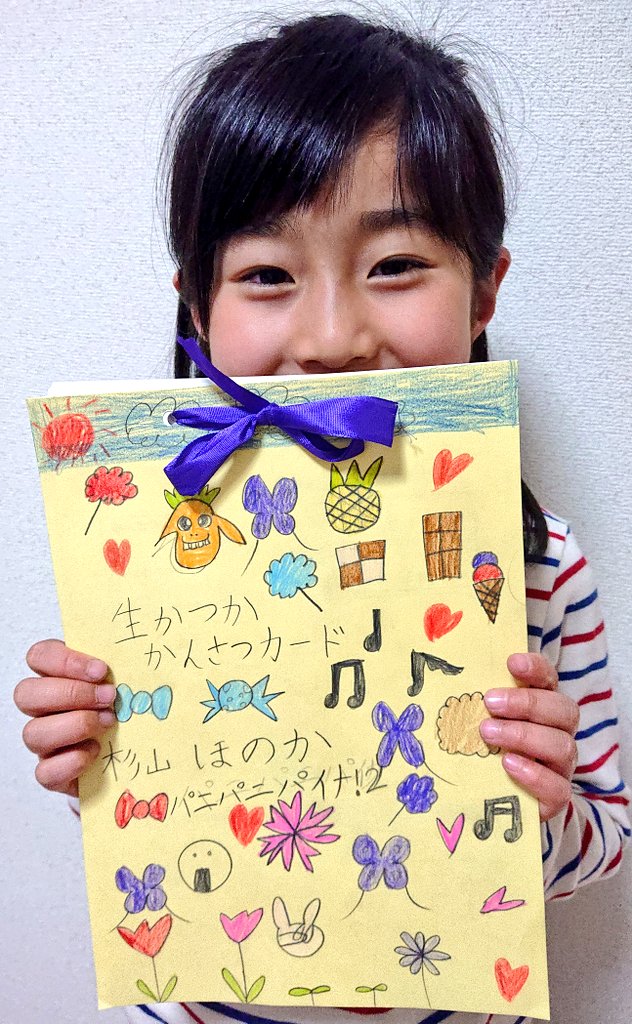 生かつか
かんさつカード
杉山 ほのか
パニパニパイナ!2